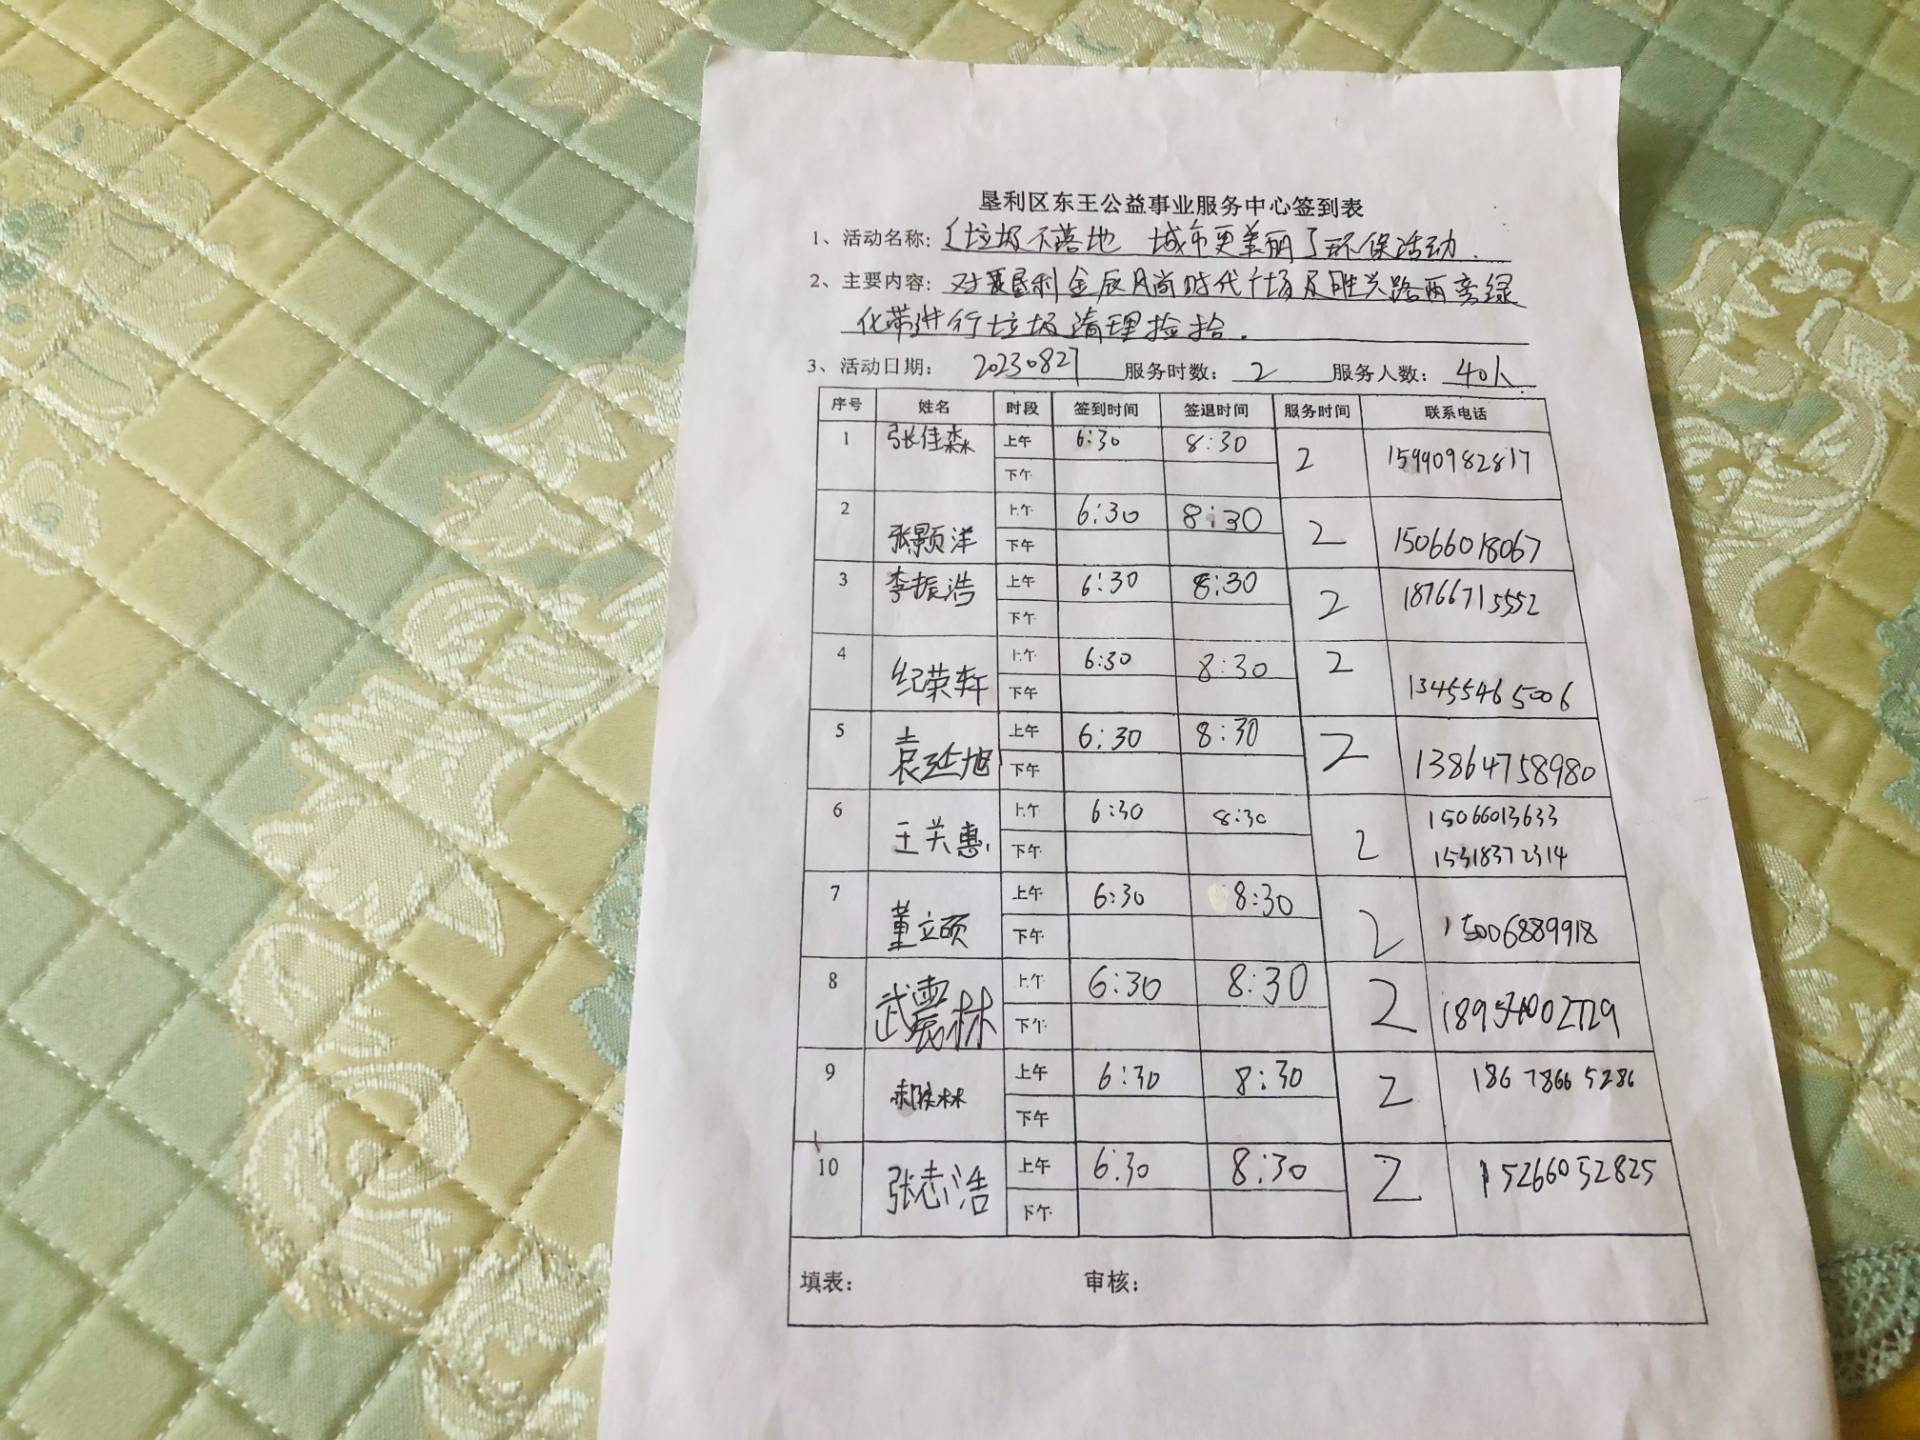 垦利区东王公益事业服务中心签到表
1、活动名称: 「垃圾不落地 城市更美丽」环保活动.
2、主要内容: 对垦利金辰月尚时代广场及胜兴路两旁绿
化带进行垃圾清理捡拾.
3、活动日期: 20230827 服务时数: 2 服务人数: 40人
序号 姓名 时段 签到时间 签退时间 服务时间 联系电话
1 张佳森 上午 6:30 8:30 2 15990982817
下午
2 张颢洋 上午 6:30 8:30 2 15066018067
下午
3 李振浩 上午 6:30 8:30 2 18766715552
下午
4 纪荣轩 上午 6:30 8:30 2 13455465006
下午
5 袁延旭 上午 6:30 8:30 2 13864758980
下午
6 王关惠 上午 6:30 8:30 2 15066013633
下午 15318372314
7 董立硕 上午 6:30 8:30 2 15006889918
下午
8 武震林 上午 6:30 8:30 2
下午
9 上午 6:30 8:30 2 186 7866 5286
下午
10 张志浩 上午 6:30 8:30 2 15266052825
下午
填表: 审核: